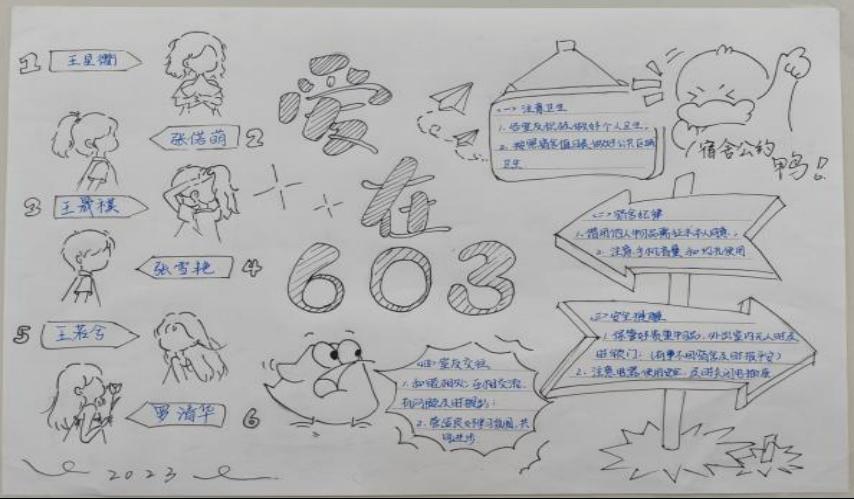 1 王星衢
张偌萌 2
3 王晟祺
张雪艳 4
5 王若兮
罗清华 6
2023
爱
在
603
<一> 注意卫生
1. 个人卫生
2. 按照宿舍值日表做好公共区域
卫生
宿舍公约
鸭!
<二> 宿舍纪律
1. 借用他人物品需征求本人同意
2. 注意手机音量
使用
<三> 安全提醒
1. 保管好贵重物品, 外出室内无人时及
时锁门
2. 注意电器使用安全, 及时关闭电插座
<四> 室友交往
1. 和谐相处, 互相交流,
有问题及时
2. 营造良好学习氛围, 共
同进步